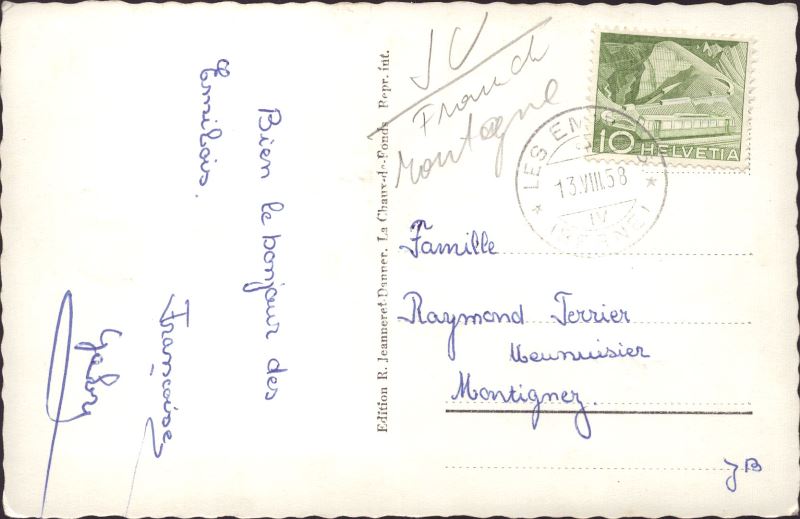 Bien le bonjour des
Emibois.
Françoise,
Gaby
Edition R. Jeanneret-Danner, La Chaux-de-Fonds  Repr. int.
JU
Franch
Montagne
10 HELVETIA
LES EMIBOIS
13.VIII.58
IV
(BERNE)
Famille
Raymond Terrier
Menuisier
Montignez.
JB